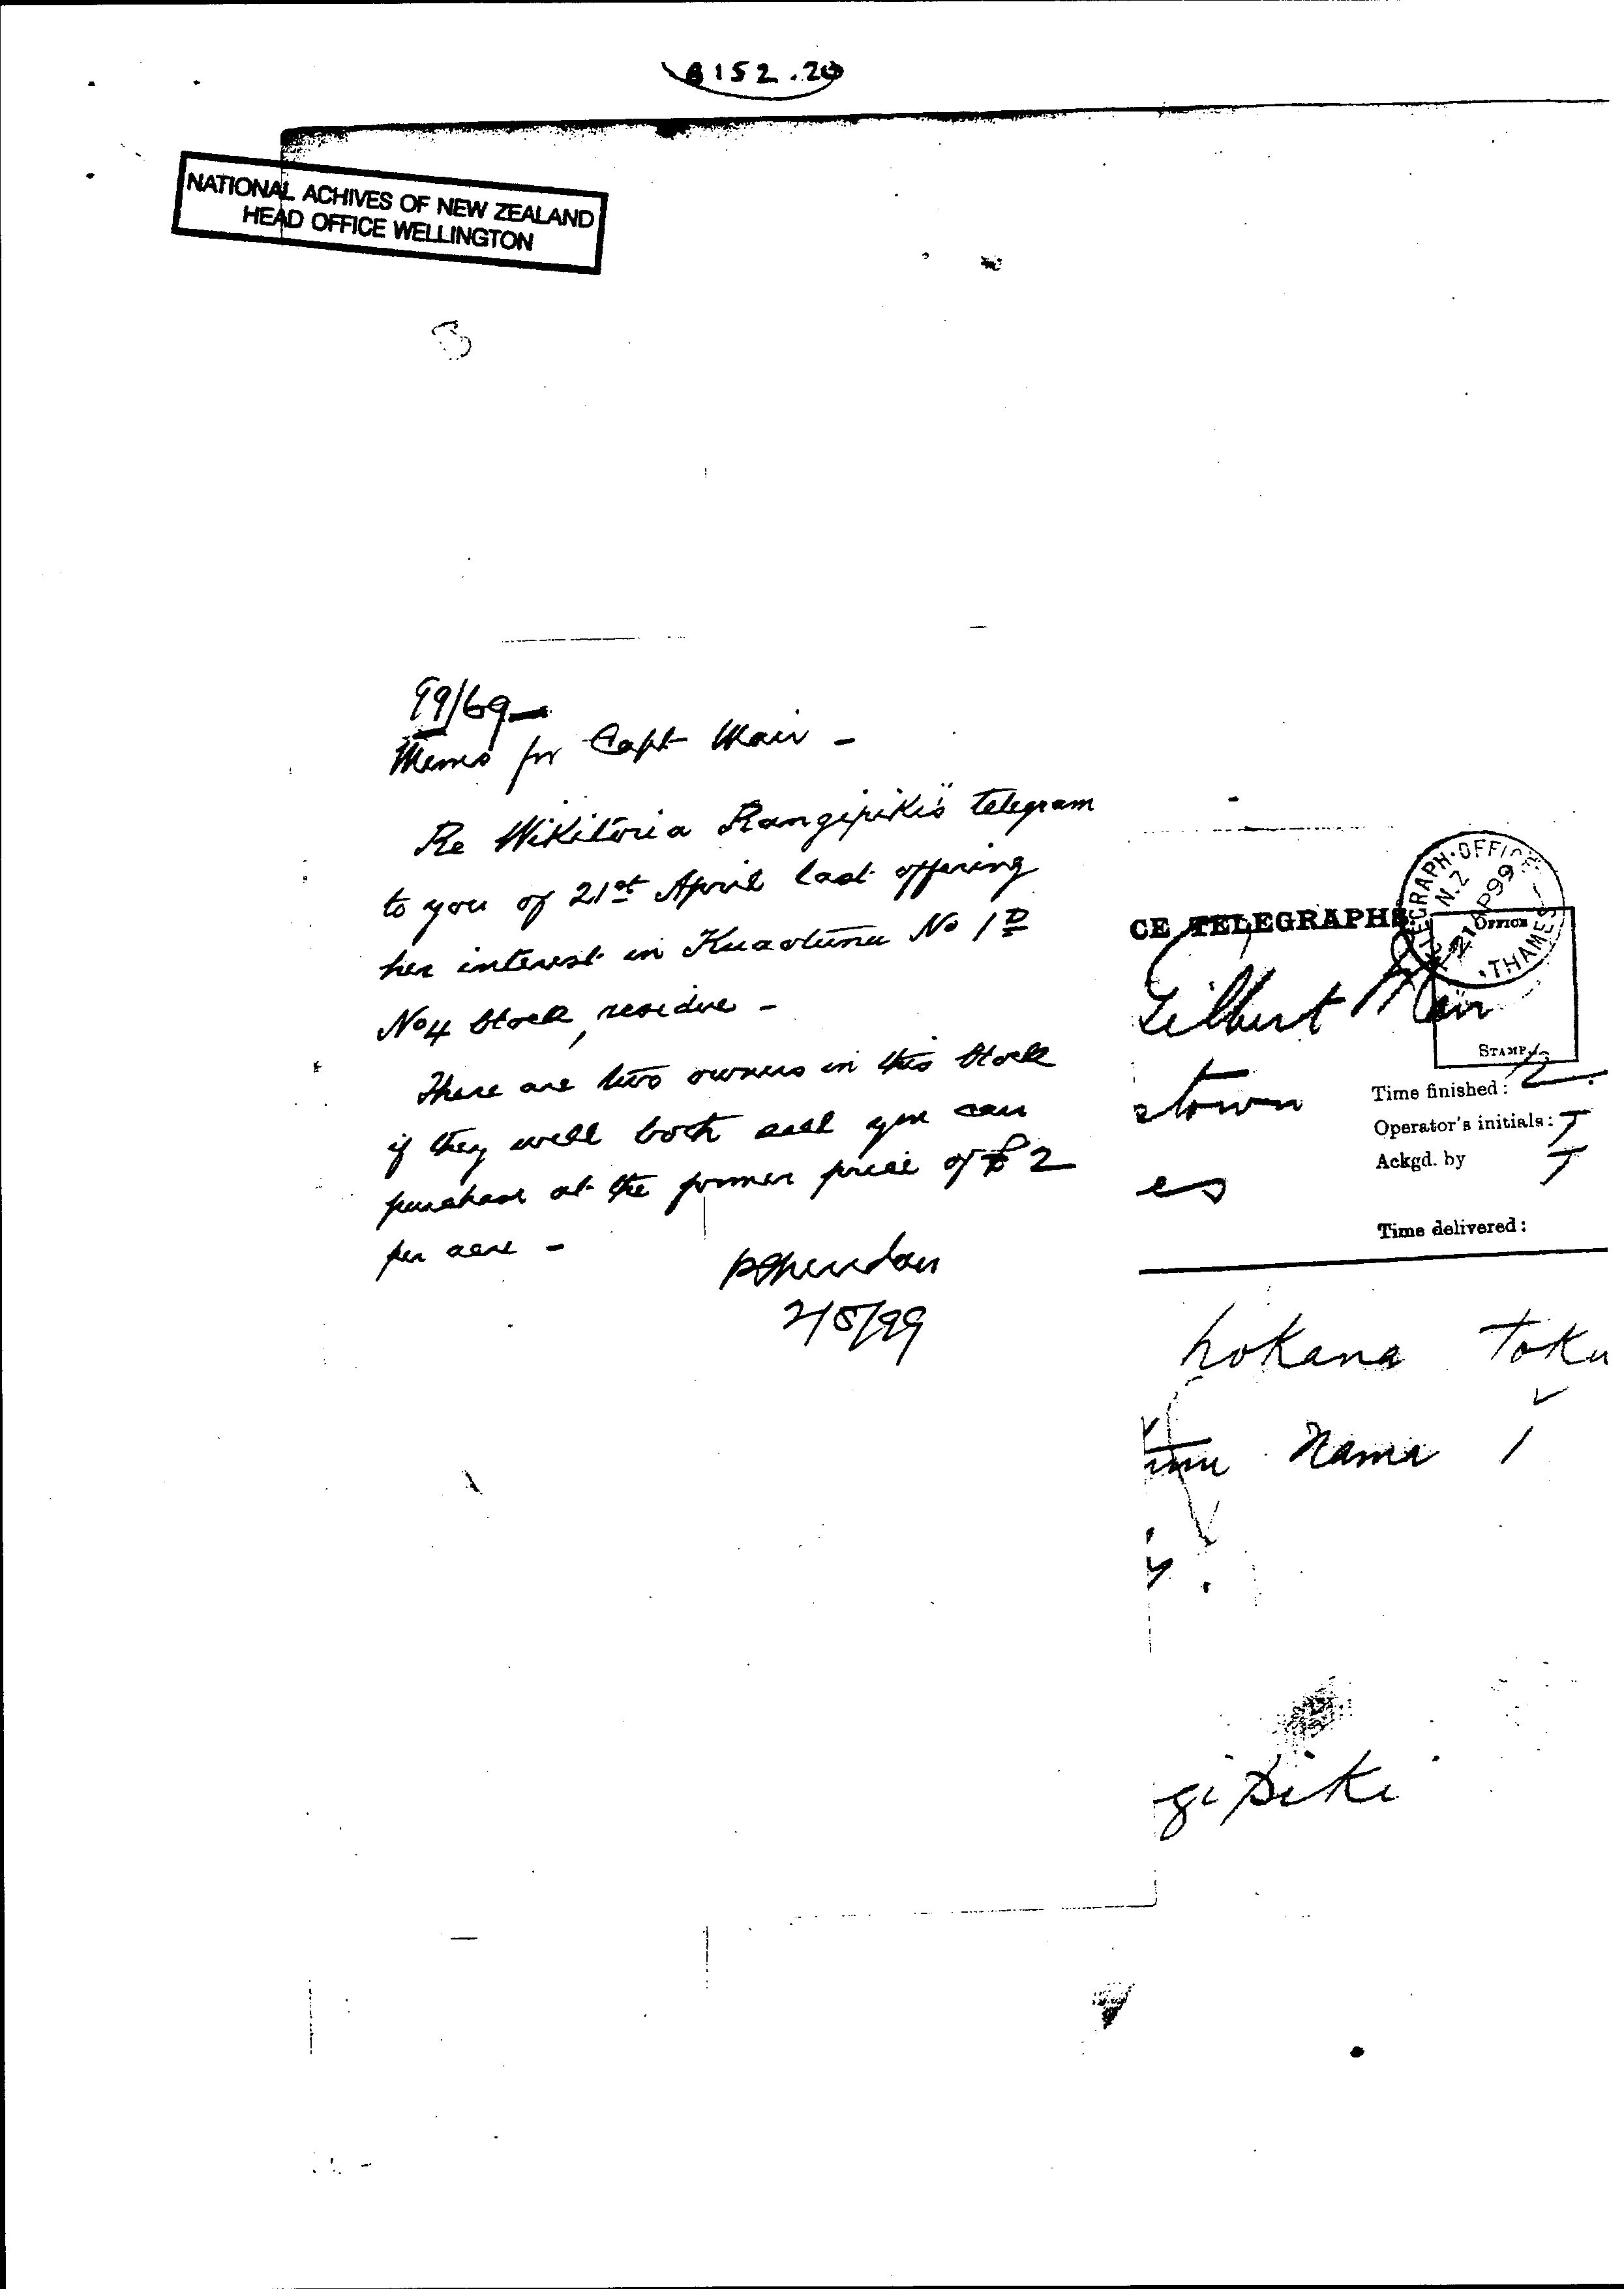 B152.20
NATIONAL ACHIVES OF NEW ZEALAND
HEAD OFFICE WELLINGTON
99/69
Memo for Capt Mair -
Re Wikitoria Rangipiki's telegram
to you of 21st April last offering
her interest in Kuaotunu No 1D
No 4 block, residue -
There are two owners in this block
if they will both sell you can
purchase at the former price of £2
per acre -
PSheridan
2/5/99
CE TELEGRAPHS
TELEGRAPH OFFICE
N.Z
21 AP 99
THAMES
OFFICE
STAMP.
Gilbert Mair
stown
es
Time finished:
Operator's initials: T
Ackgd. by T
Time delivered:
hokana toku
unu Nama 1
4.
gipiki